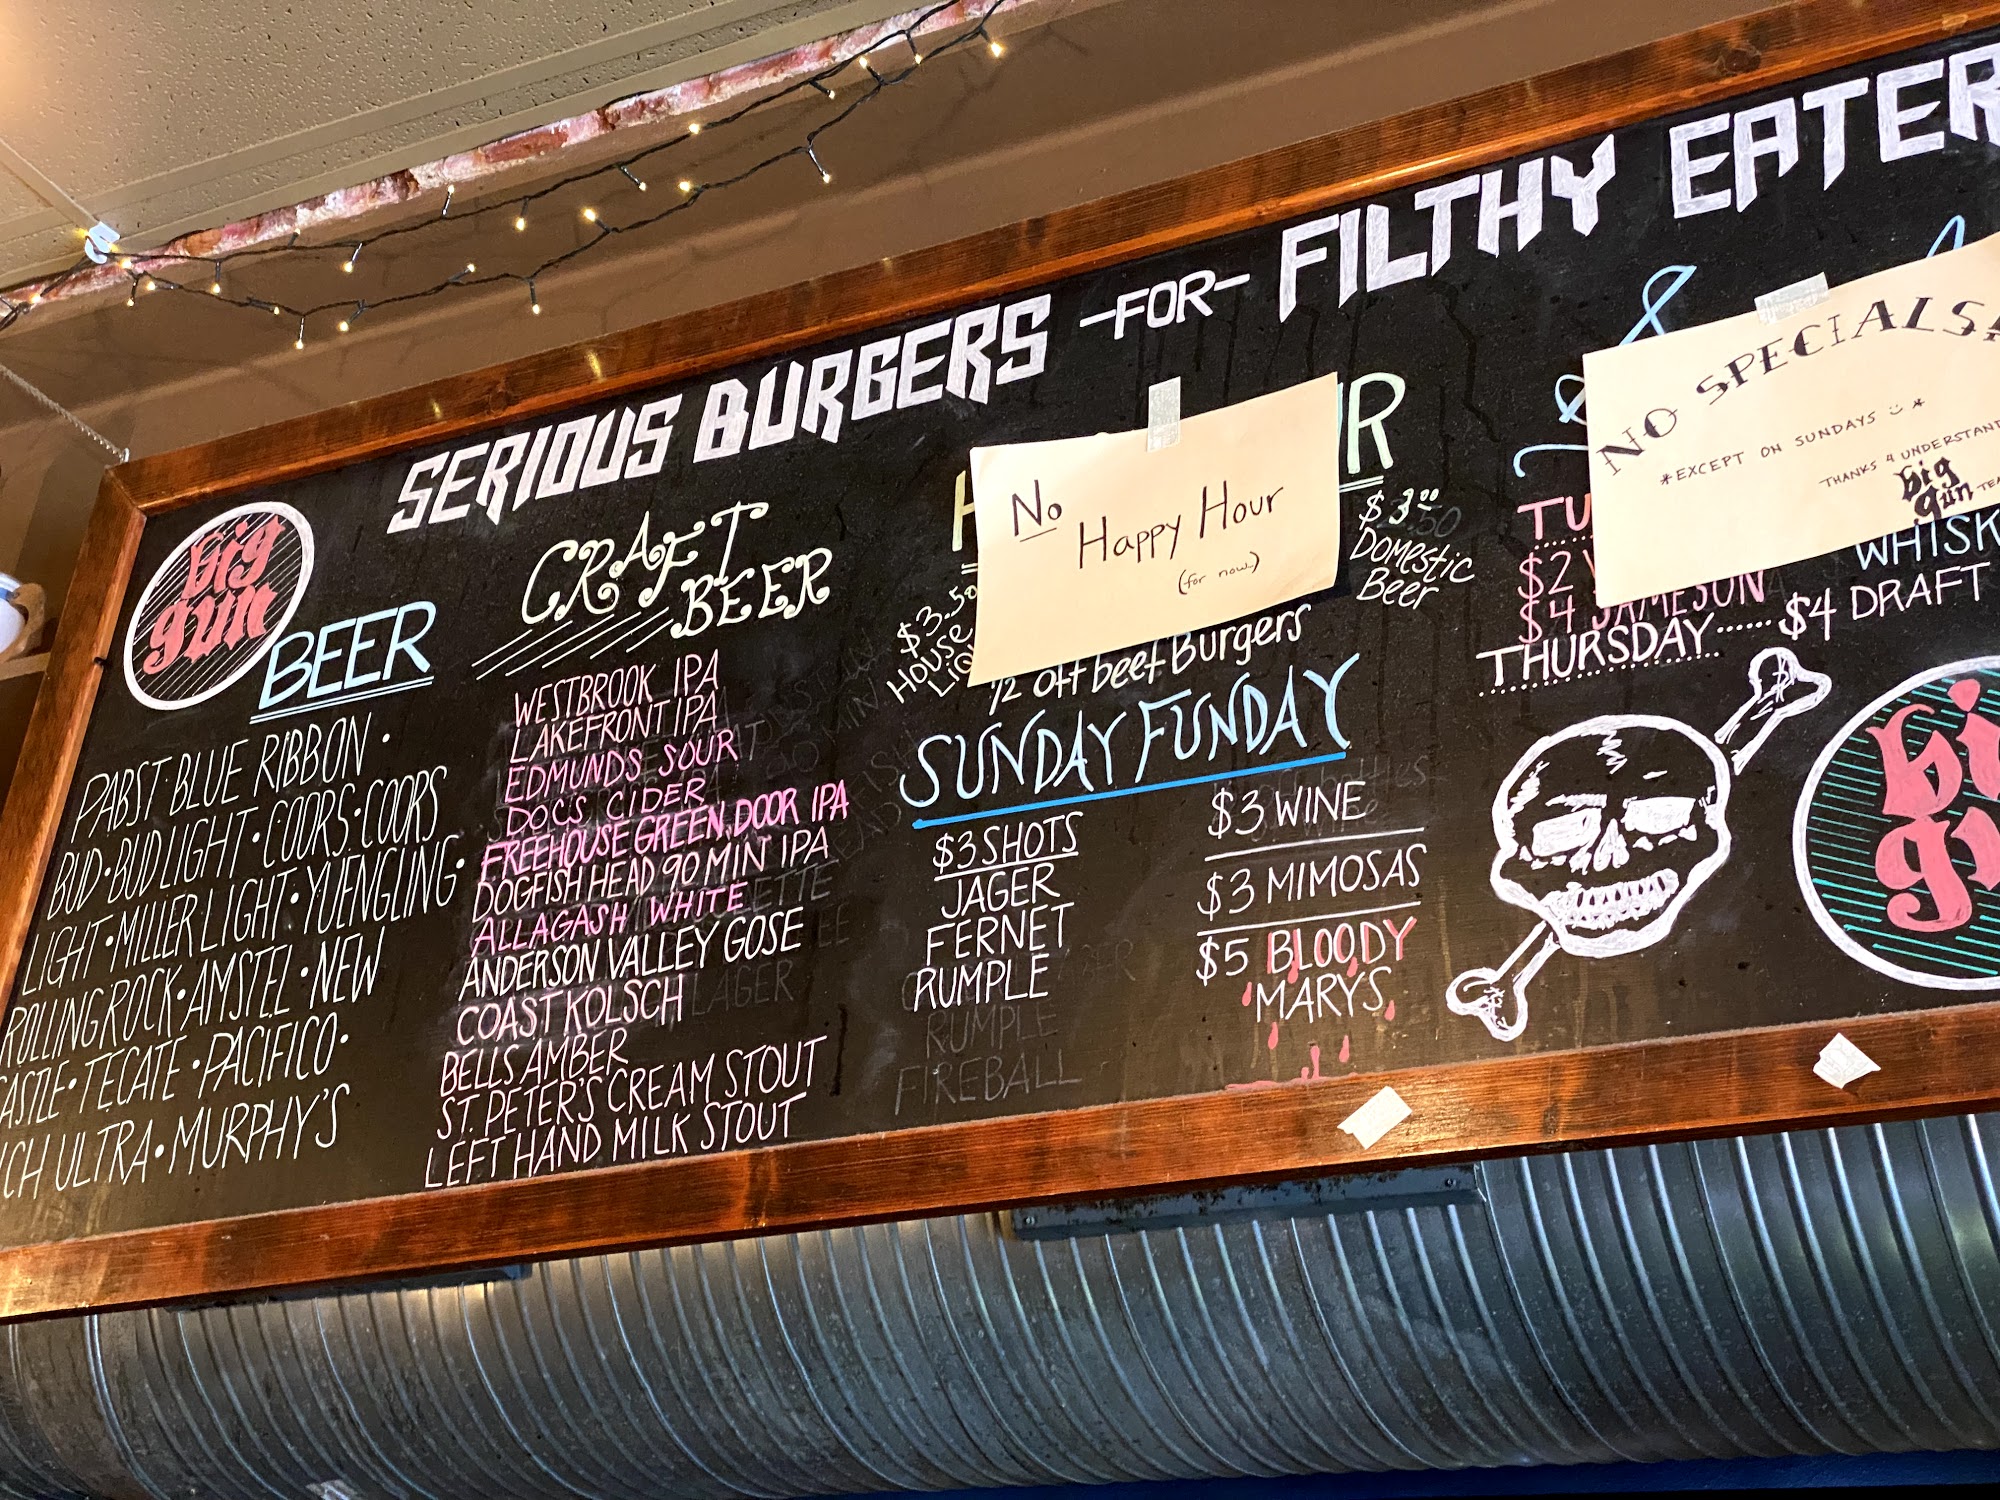 SERIOUS BURGERS -FOR- FILTHY EATER
big
gun
BEER
PABST BLUE RIBBON •
BUD • BUD LIGHT • COORS • COORS
LIGHT • MILLER LIGHT • YUENGLING •
ROLLING ROCK • AMSTEL • NEW
CASTLE • TECATE • PACIFICO •
ULTRA • MURPHY'S
CRAFT
BEER
WESTBROOK IPA
LAKEFRONT IPA
EDMUNDS SOUR
DOCS CIDER
FREEHOUSE GREEN DOOR IPA
DOGFISH HEAD 90 MIN IPA
ALLAGASH WHITE
ANDERSON VALLEY GOSE
COAST KOLSCH
BELLS AMBER
ST. PETER'S CREAM STOUT
LEFT HAND MILK STOUT
No
Happy Hour
(for now)
$3.50
HOUSE
$3.00
Domestic
Beer
1/2 off beef Burgers
SUNDAY FUNDAY
$3 SHOTS
JAGER
FERNET
RUMPLE
RUMPLE
FIREBALL
$3 WINE
$3 MIMOSAS
$5 BLOODY
MARYS
&
NO SPECIALS
*EXCEPT ON SUNDAYS *
THANKS 4 UNDERSTAND
big
gun
TU
$2
$4 JAMESON
WHISK
THURSDAY ...... $4 DRAFT